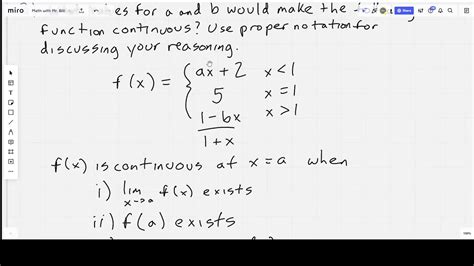 miro Math with Mr. Bill
for a and b would make the
function continuous? Use proper notation for
discussing your reasoning.
f(x) = { ax + 2 x < 1
5 x = 1
1 - bx x > 1
1 + x
f(x) is continuous at x = a when
i) lim f(x) exists
x→a
ii) f(a) exists